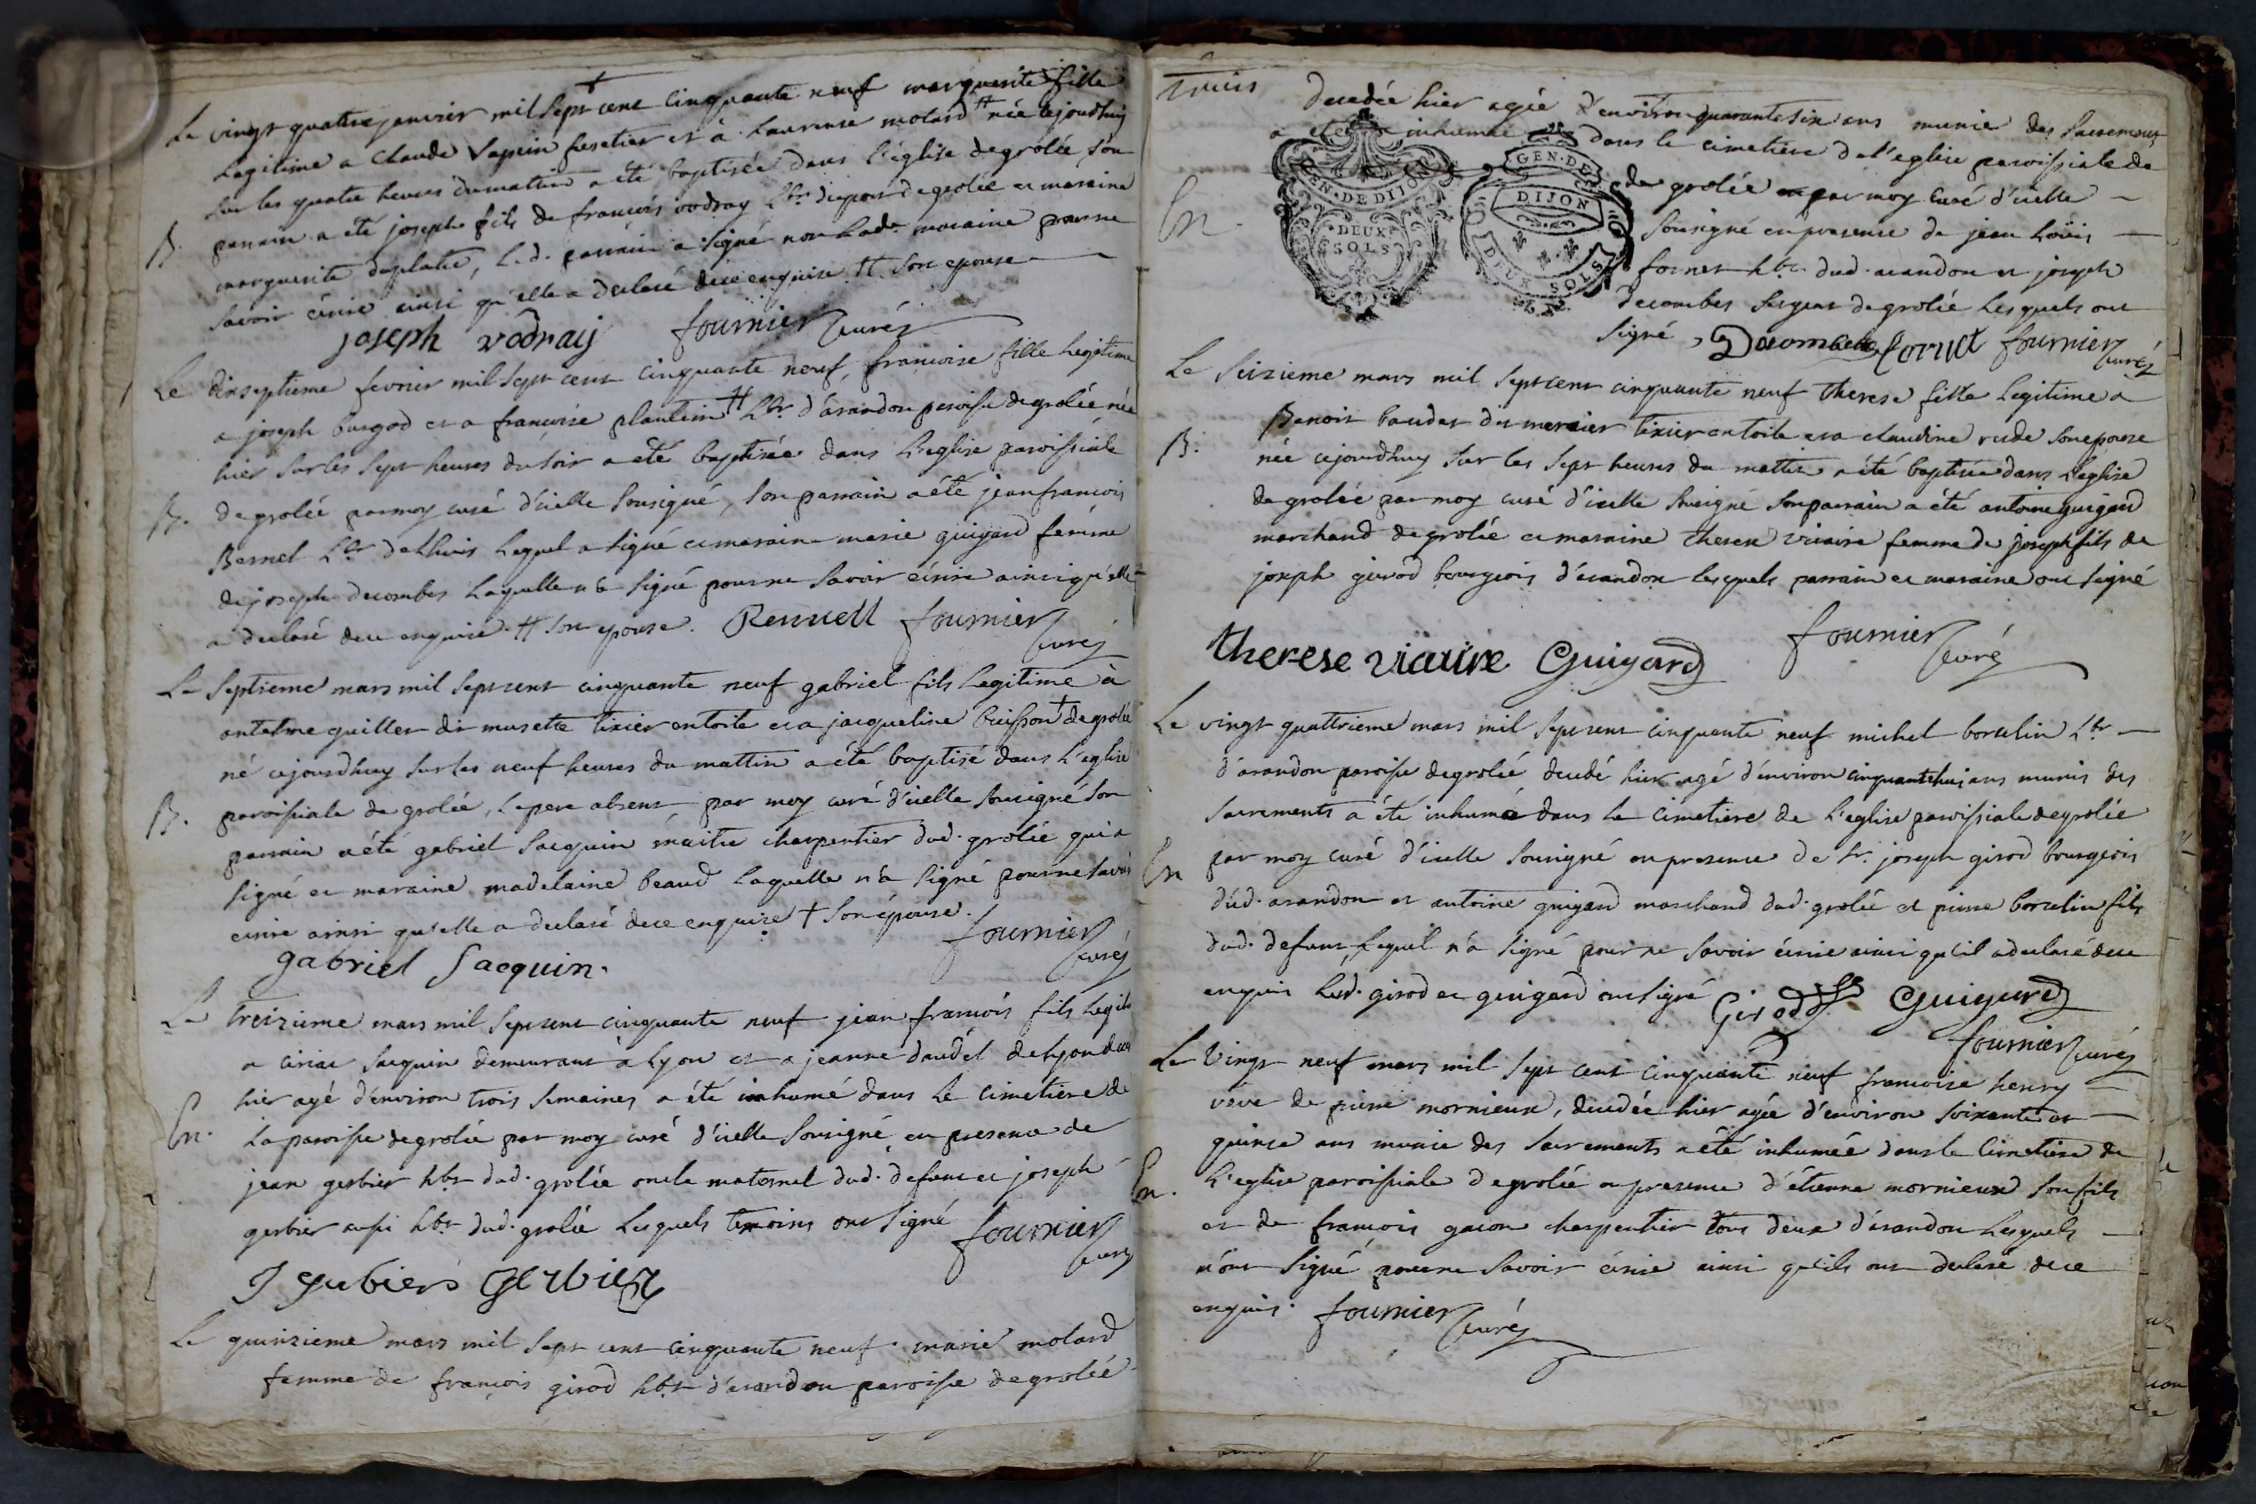 Le vingt quatre janvier mil sept cent cinquante neuf marguerite fille
Legitime a Claude Vapein et à Laurence molard # née cejourdhuy
sur les quatre heures du matin a eté baptisée dans l'église de grolée son
B. parrain a eté joseph fils de francois vodray de grolée et maraine
marguerite, Led. parrain a signé non Lade maraine pour ne
savoir écrire ainsi qu'elle a declaré de ce enquise # son epouse
joseph vodray fournier curé
Le dixseptieme fevrier mil sept cent cinquante neuf, francoise fille Legitime
a joseph burgod et a francoise plantein # hbr d'arandon paroisse de grolée née
hier sur les sept heures du soir a eté baptisée dans L'eglise paroissiale
B. de grolée par moy curé d'icelle sousigné, son parrain a été jean francois
Bernel hbr de Lhuis Lequel a signé et maraine marie guigard femme
de joseph decombes Laquelle n'a signé pour ne savoir écrire ainsi qu'elle
a declaré de ce enquise # son epouse. Rennell fournier curé
Le septieme mars mil sept cent cinquante neuf gabriel fils Legitime à
antelme guiller dit musette tixier en toile et a jacqueline buisson + de grolée
né cejourdhuy sur les neuf heures du mattin a été baptisé dans L'eglise
B. paroissiale de grolée, Le pere absent par moy curé d'icelle sousigné son
parrain a été gabriel sacquin maitre charpentier dud. grolée qui a
signé et maraine madelaine beaud Laquelle n'a signé pour ne savoir
écrire ainsi qu'elle a declaré de ce enquise + son épouse.
gabriel sacquin. fournier curé
Le treizieme mars mil sept cent cinquante neuf jean francois fils Legit
a ciriac sacquin demeurant à Lyon et a jeanne daudet de Lyon
hier agé d'environ trois semaines a été inhumé dans Le cimetiere de
En. La paroisse de grolée par moy curé d'icelle sousigné en presence de
jean gerbier hbr dud. grolée oncle maternel dud. defunt et joseph
gerbier aussi hbr dud. grolée Lesquels temoins ont signé
J gerbiers Gerbier fournier curé
Le quinzieme mars mil sept cent cinquante neuf marie molard
femme de francois girod hbr d'arandon paroisse de grolée
Trois decedée hier agée d'environ quarante six ans munie des sacremens
a eté inhumée dans le cimetiere de l'eglise paroissiale de
GEN·DE DIJON
DEUX SOLS
GEN·DE
DIJON
DEUX SOLS
En. de grolée par moy curé d'icelle
sousigné en presence de jean Loüis
fornet hbr dud. arandon et joseph
decombes sergent de grolée Lesquels ont
signé, Decombes fornet fournier curé
Le seizieme mars mil sept cent cinquante neuf therese fille Legitime a
Benoit baudet dit mercier tixier en toile et a claudine rude son epouse
B. née cejourdhuy sur les sept heures du mattin a été baptisée dans L'eglise
de grolée par moy curé d'icelle sousigné son parrain a été antoine guigard
marchand de grolée et maraine therese viaire femme de joseph fils de
joseph girod bourgeois d'arandon lesquels parrain et maraine ont signé
therese viauire Guigard fournier curé
Le vingt quattrieme mars mil sept cent cinquante neuf michel borcelin hbr
d'arandon paroisse de grolée decedé hier agé d'environ cinquante huit ans munis des
sacrements a été inhumé dans Le cimetiere de L'eglise paroissiale de grolée
En par moy curé d'icelle sousigné en presence de Sr. joseph girod bourgeois
dud. arandon et antoine guigard marchand dud. grolée et pierre borcelin fils
dud. defunt, Lequel n'a signé pour ne savoir écrire ainsi qu'il a declaré de ce
enquis Lesd. girod et guigard ont signé Girod Guigard
fournier curé
Le vingt neuf mars mil sept cent cinquante neuf francoise henry
veve de pierre mornieux, decedée hier agée d'environ soixante et
quinse ans munie des sacrements a été inhumée dans le cimetiere de
En. L'eglise paroissiale de grolée en presence d'étienne mornieux son fils
et de francois gacon charpentier tous deux d'arandon Lesquels
n'ont signé pour ne savoir écrire ainsi qu'ils ont declaré de ce
enquis. fournier curé